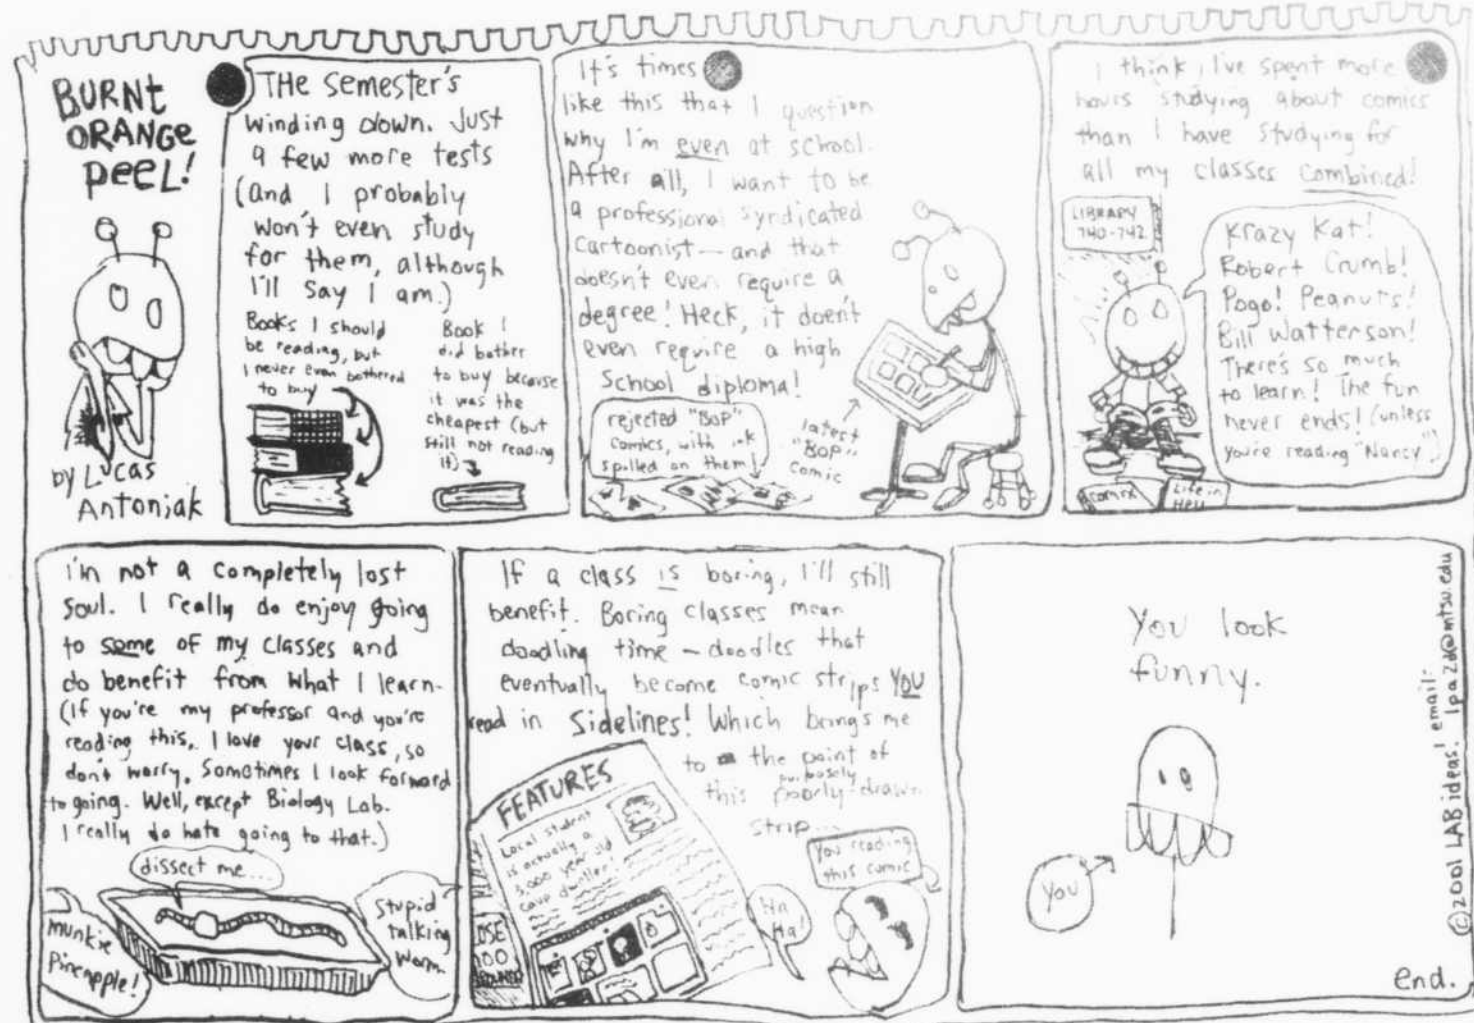 BURNT
ORANGE
PEEL!
by Lucas
Antoniak
THE semester's
winding down. Just
a few more tests
(and I probably
won't even study
for them, although
I'll say I am.)
Books I should
be reading, but
I never even bothered
to buy
Book I
did bother
to buy because
it was the
cheapest (but
still not reading
it)
It's times
like this that I question
why I'm even at school.
After all, I want to be
a professional syndicated
cartoonist — and that
doesn't even require a
degree! Heck, it doen't
even require a high
school diploma!
rejected "BOP"
comics, with ink
spilled on them!
latest
"BOP"
comic
I think I've spent more
hours studying about comics
than I have studying for
all my classes combined!
LIBRARY
740-742
Krazy Kat!
Robert Crumb!
Pogo! Peanuts!
Bill Watterson!
There's so much
to learn! The fun
never ends! (unless
you're reading "Nancy")
comix
Life in
Hell
I'm not a completely lost
soul. I really do enjoy going
to some of my classes and
do benefit from what I learn.
(If you're my professor and you're
reading this, I love your class, so
don't worry. Sometimes I look forward
to going. Well, except Biology Lab.
I really do hate going to that.)
dissect me...
munkie
pineapple!
Stupid
talking
worm.
If a class is boring, I'll still
benefit. Boring classes mean
doodling time — doodles that
eventually become comic strips YOU
read in Sidelines! Which brings me
to the point of
this purposely poorly-drawn
strip...
FEATURES
Local student
is actually a
3,000 year old
cave dweller!
LOSE
100
POUNDS
Ha
Ha!
You reading
this comic
You look
funny.
You
©2001 LAB ideas! email: lpa2d@mtsu.edu
end.